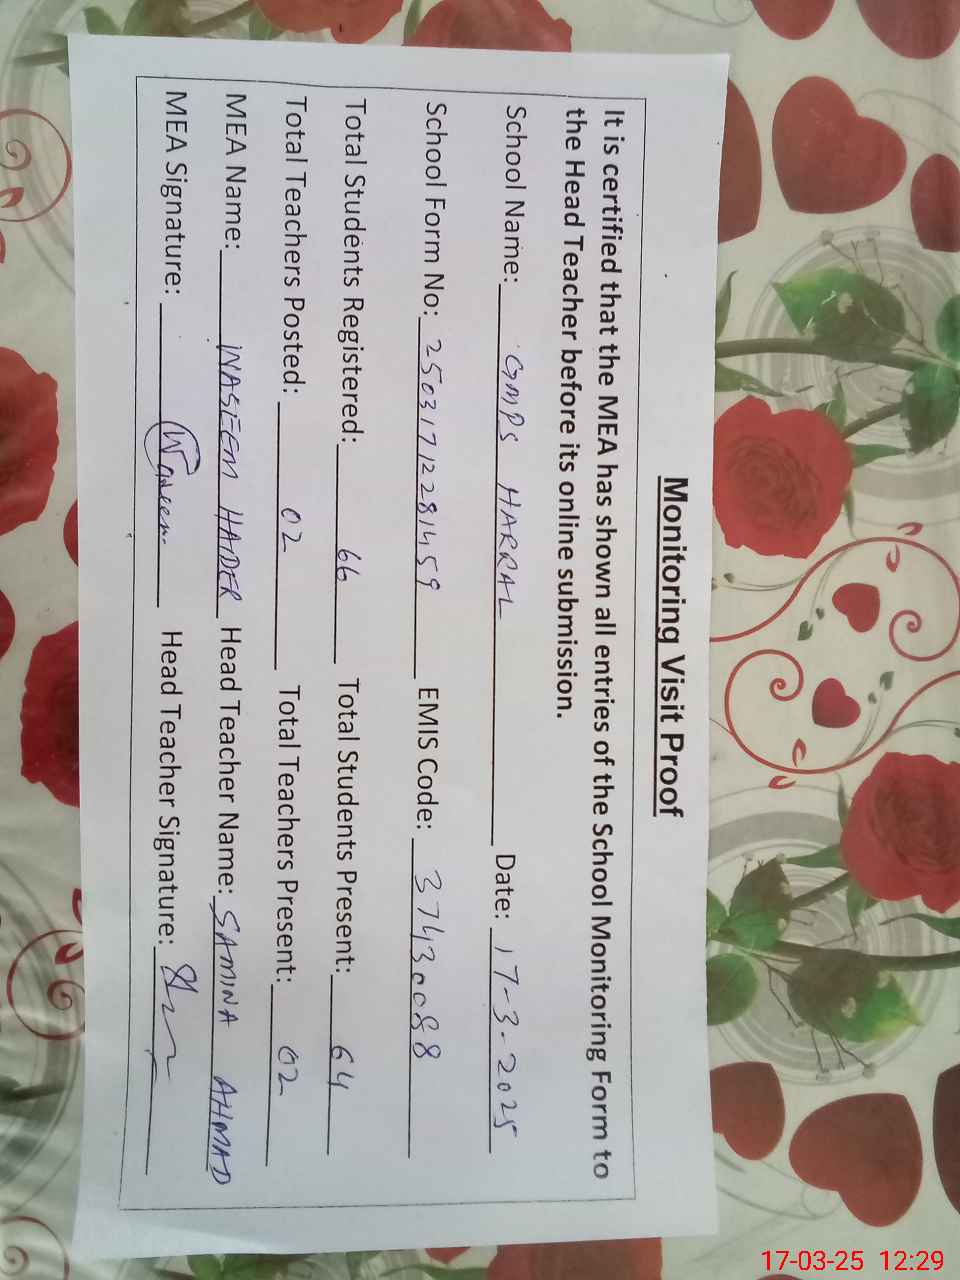 Monitoring Visit Proof
It is certified that the MEA has shown all entries of the School Monitoring Form to
the Head Teacher before its online submission.
School Name: GMPS HARRAL Date: 17-3-2025
School Form No: 25031712281459 EMIS Code: 37430088
Total Students Registered: 66 Total Students Present: 64
Total Teachers Posted: 02 Total Teachers Present: 02
MEA Name: WASEEM HADER Head Teacher Name: SAMINA AHMAD
MEA Signature: Waseem Head Teacher Signature:
17-03-25 12:29